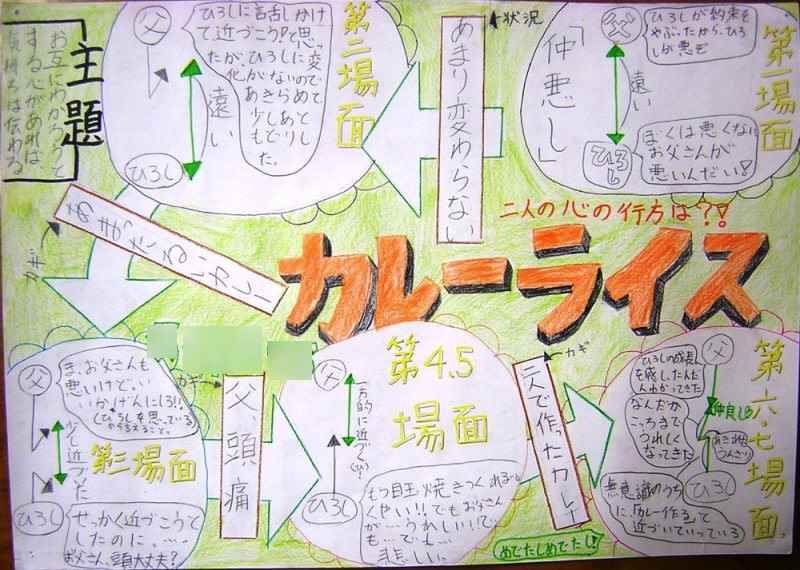 カレーライス
二人の心の行方は?!
主題
お互にわかろうと
する心があれば、
気持ちは伝わる
第一場面
父
ひろしが約束を
やぶったから、ひろ
しが悪い
遠い
「仲悪し」
ひろし
ぼくは悪くない
お父さんが
悪いんだい!
状況
あまり変わらない
第二場面
父
ひろしに話しかけ
て近づこうと思っ
たが、ひろしに変
化がないので
あきらめて
少しあと
もどりし
た。
遠い
ひろし
カギ
あまったるいカレー
第三場面
父
ま、お父さんも
悪いけど、い
いかげんにしろ!!
(ひろしを思っている
少し近づいた
ひろし
せっかく近づこうと
したのに、……
お父さん、頭大丈夫?
カギ
父、頭痛
第4.5
場面
父
一方的に近づく
ひろし
もう目玉焼きつくれるー
くやい!!でもお父さん
が…うれしい!!て、
も…でも…
悲しい。
カギ
二人で作ったカレイ
第六・七場面
父
ひろしの成長
を感じ、だんだ
んわかってきた
なんだか
こっちまで
うれしく
なってきた
仲良しの
ひろし
無意識のうち
に、「カレー作る」って
近づいていっている
めでたしめでたし!